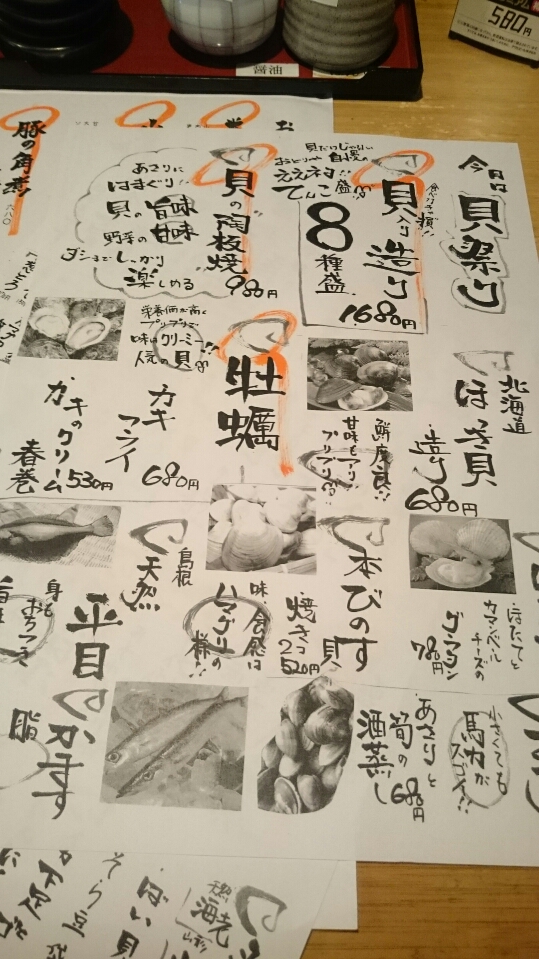 580円
醤油
今日は
貝祭り
貝入り
造り
8
種盛
1680円
貝だけじゃない
自慢の
てんこ盛
貝の陶板焼
980円
あさりに
はまぐり
貝の旨味
野菜の甘味
ダシまでしっかり
楽しめる
豚の角煮
六八〇
北海道
ほっき貝
造り
680円
鮮度良
甘味もアリ
プリプリ
牡蠣
栄養価が高く
プリプリで
味はクリーミー
人気の貝
カキ
フライ
680円
カキのクリーム
春巻
530円
ほたてと
カマンベール
チーズの
グラタン
780円
本びのす
貝
焼き2コ
520円
味・食感は
ハマグリの
様
島根
天然
平目
身も
小さくても
馬力が
スゴイ!!
あさりと
筍の
酒蒸し
680円
かます
脂
天然
海老
ばい貝
そら豆